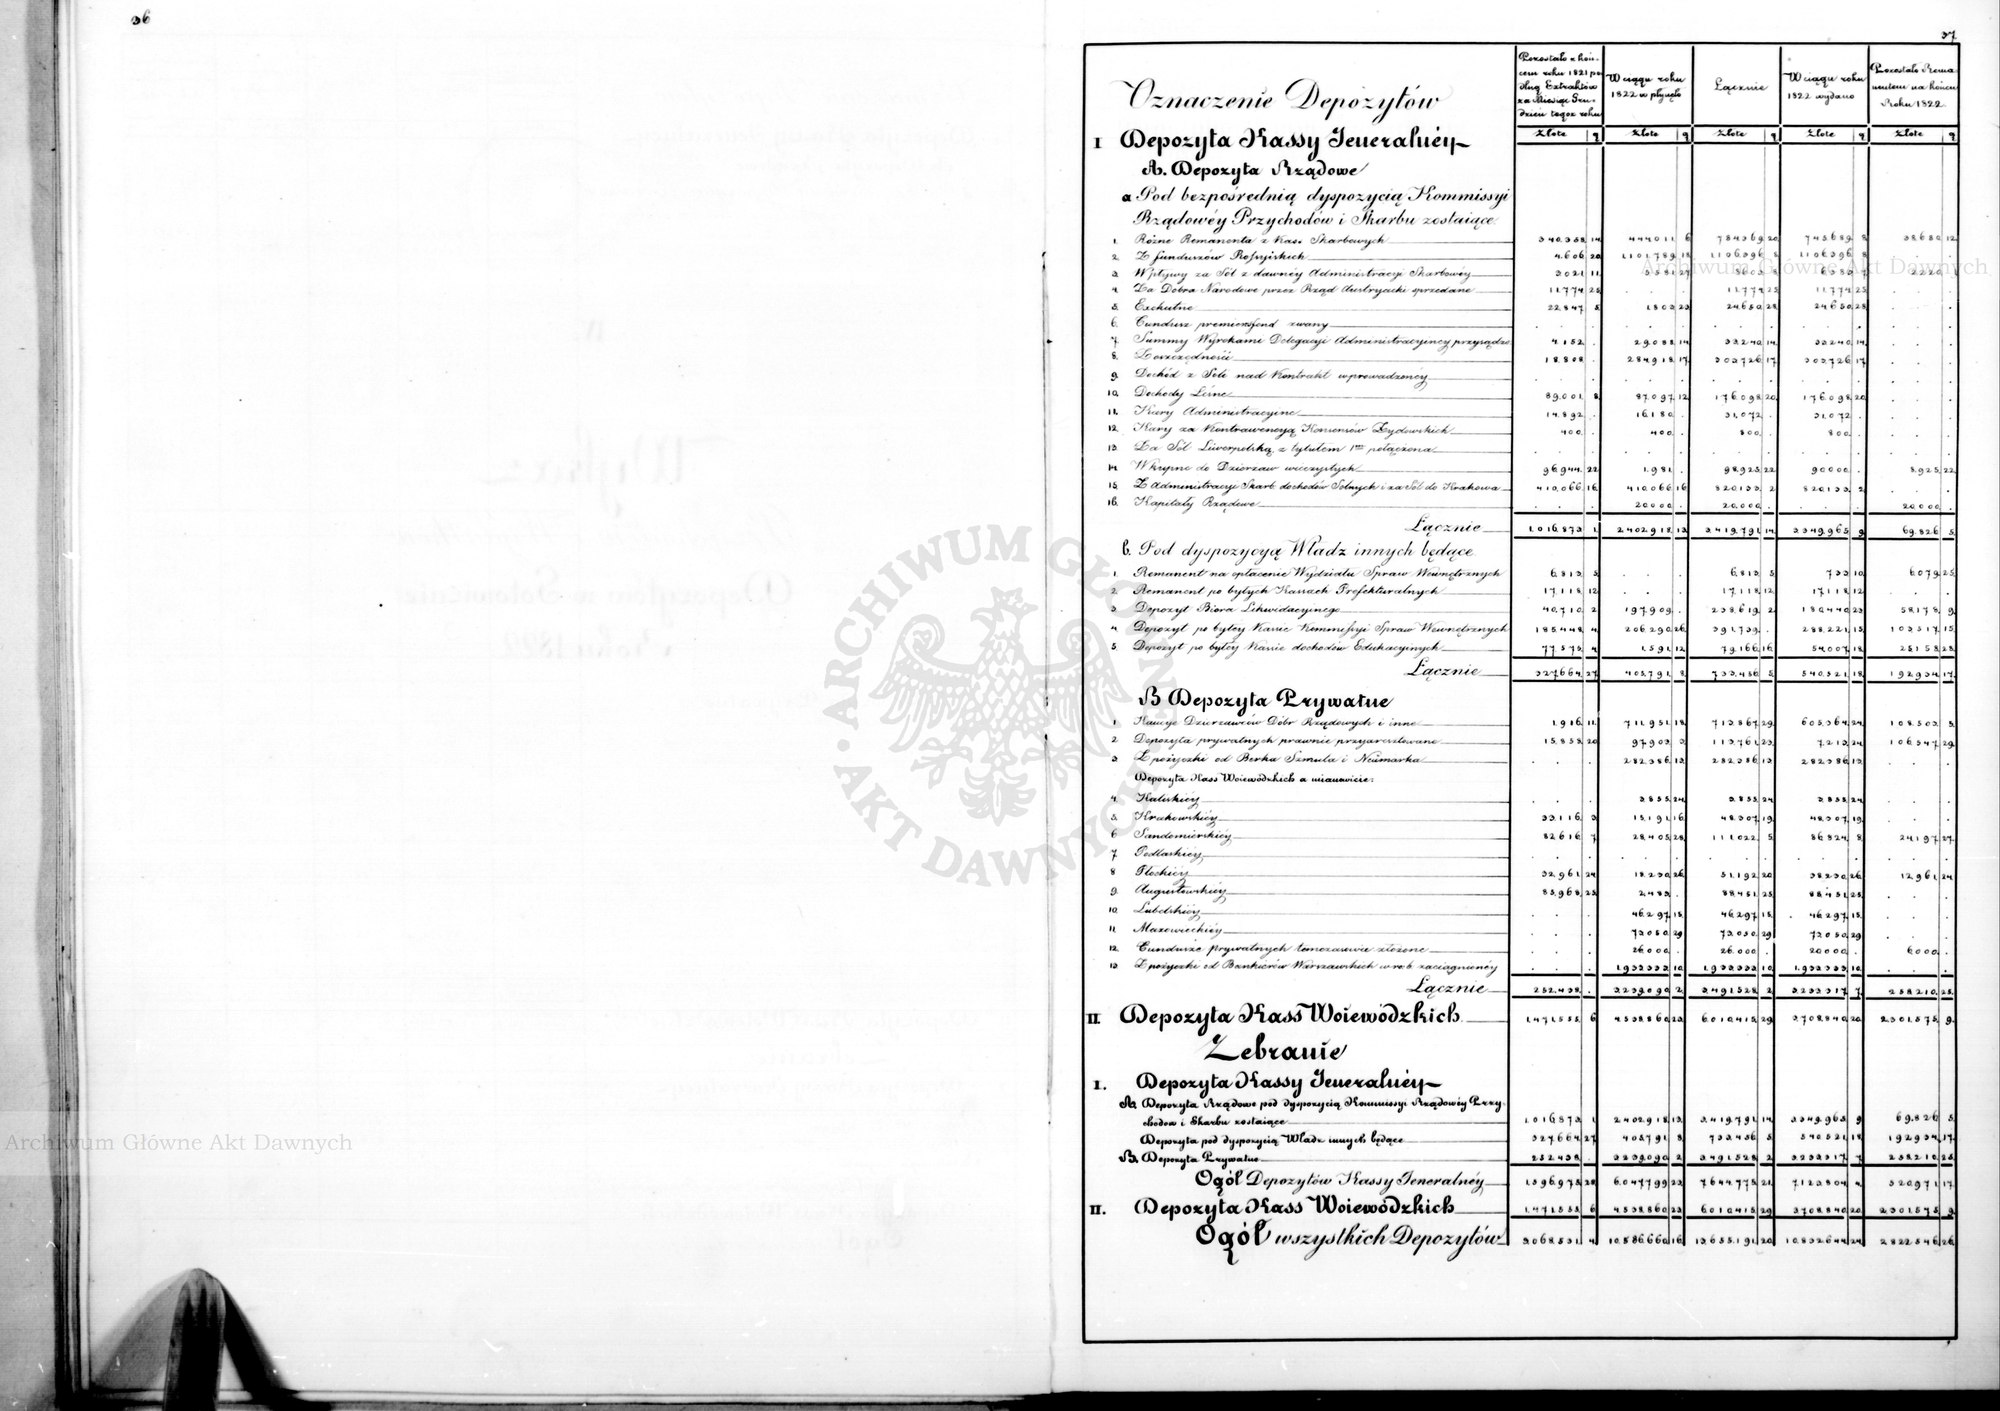 36
37
Oznaczenie Depozytów
Pozostało z koń-
cem roku 1821 po-
dług Extraktów
za Miesiąc Gru-
dzień tegoż roku
W ciągu roku
1822 wpłynęło
Łącznie
W ciągu roku
1822 wydano
Pozostało Rema-
nentem na końcu
Roku 1822.
Złote g Złote g Złote g Złote g Złote g
I Depozyta Kassy Jeneralnéy
A. Depozyta Rządowe
a Pod bezpośrednią dyspozycią Kommissyi
Rządowéy Przychodów i Skarbu zostaiące.
1. Różne Remanenta z Kass Skarbowych 340358 14 444011 6 784369 20 745689 8 38680 12
2. Z funduszów Rossyiskich 4606 20 1101789 18 1106396 8 1106396 8
3. Wpływy za Sól z dawnéy Administracyi Skarbowéy 3021 11
4. Za Dobra Narodowe przez Rząd Austryacki sprzedane 11774 25 11774 25 11774 25
5. Exekutne 22847 5 1803 23 24650 28 24650 28
6. Fundusz premiersfond zwany
7. Summy Wyrokami Delegacyi Administracyiney przysądzo 4152 29088 14 33240 14 33240 14
8. Z oszczędności 18808 284918 17 303726 17 303726 17
9. Dochód z Soli nad Kontrakt wprowadzonéy
10. Dochody Leśne 89001 8 87097 12 176098 20 176098 20
11. Kary Administracyine 14892 16180 31072 31072
12. Kary za Kontrawencyą Konsensów Żydowskich 400 400 800 800
13. Za Sól Liwerpolską z tytułem 1ym połączona
14. Wkupne do Dzierzaw wieczystych 96944 22 1981 98925 22 90000 8925 22
15. Z Administracyi Skarb. dochodów Solnych i za Sól do Krakowa 410066 16 410066 16 820133 2 820133 2
16. Kapitały Rządowe 20000 20000 20000
Łącznie 1016873 1 2402918 13 3419791 14 3349965 9 69826 5
b. Pod dyspozycyą Władz innych będące
1. Remanent na opłacenie Wydziału Spraw Wewnętrznych 6813 5 6813 5 733 10 6079 25
2. Remanent po byłych Kassach Prefekturalnych 17118 12 17118 12 17118 12
3. Depozyt Biora Likwidacyinego 40710 2 197909 238619 2 180440 23 58178 9
4. Depozyt po byłéy Kassie Kommissyi Spraw Wewnętrznych 185448 4 206290 26 391739 288221 15 103517 15
5. Depozyt po byłéy Kassie dochodów Edukacyinych 77575 4 1591 12 79166 16 54007 18 25158 28
Łącznie 327664 27 405791 8 733456 5 540521 18 192934 17
B Depozyta Prywatne
1. Kaucye Dzierzawców Dóbr Rządowych i inne 1916 11 711951 18 713867 29 605364 24 108503 5
2. Depozyta prywatnych prawnie przyaresztowane 15858 20 97903 3 113761 23 7213 24 106547 29
3. Z pożyczki od Berka Szmula i Neümarka 282386 13 282386 13 282386 13
Depozyta Kass Woiewódzkich a mianowicie:
4. Kaliskiéy 3855 24 3855 24 3855 24
5. Krakowskiéy 33116 3 15191 16 48307 19 48307 19
6. Sandomierskiéy 82616 7 28405 28 111022 5 86824 8 24197 27
7. Podlaskiéy
8. Płockiéy 32961 24 18230 26 51192 20 38230 26 12961 24
9. Augustowskiéy 85968 25 2483 88451 25 88451 25
10. Lubelskiéy 46297 15 46297 15 46297 15
11. Mazowieckiéy 73050 29 73050 29 73050 29
12. Fundusze prywatnych tymczasowie złożone 26000 26000 20000 6000
13. Z pożyczki od Bankierów Warszawskich w ro b zaciągnionéy 1933333 10 1933333 10 1933333 10
Łącznie 252438 3239090 2 3491528 2 3233317 7 258210 25
II Depozyta Kass Woiewódzkich 1471555 6 4538860 23 6010415 29 3708840 20 2301575 9
Zebranie
I. Depozyta Kassy Jeneralnéy
A. Depozyta Rządowe pod dyspozycią Kommissyi Rządowéy Przy-
chodow i Skarbu zostaiące 1016873 1 2402918 13 3419791 14 3349965 9 69826 5
Depozyta pod dyspozycią Władz innych będące 327664 27 405791 8 733456 5 540521 18 192934 17
B. Depozyta Prywatne 252438 3239090 2 3491528 2 3233317 7 258210 25
Ogół Depozytów Kassy Jeneralnéy 1596975 28 6047799 23 7644775 21 7123804 4 520971 17
II. Depozyta Kass Woiewódzkich 1471555 6 4538860 23 6010415 29 3708840 20 2301575 9
Ogół wszystkich Depozytów 3068531 4 10586660 16 13655191 20 10832644 24 2822546 26
Archiwum Główne Akt Dawnych
Archiwum Główne Akt Dawnych
ARCHIWUM GŁÓWNE AKT DAWNYCH